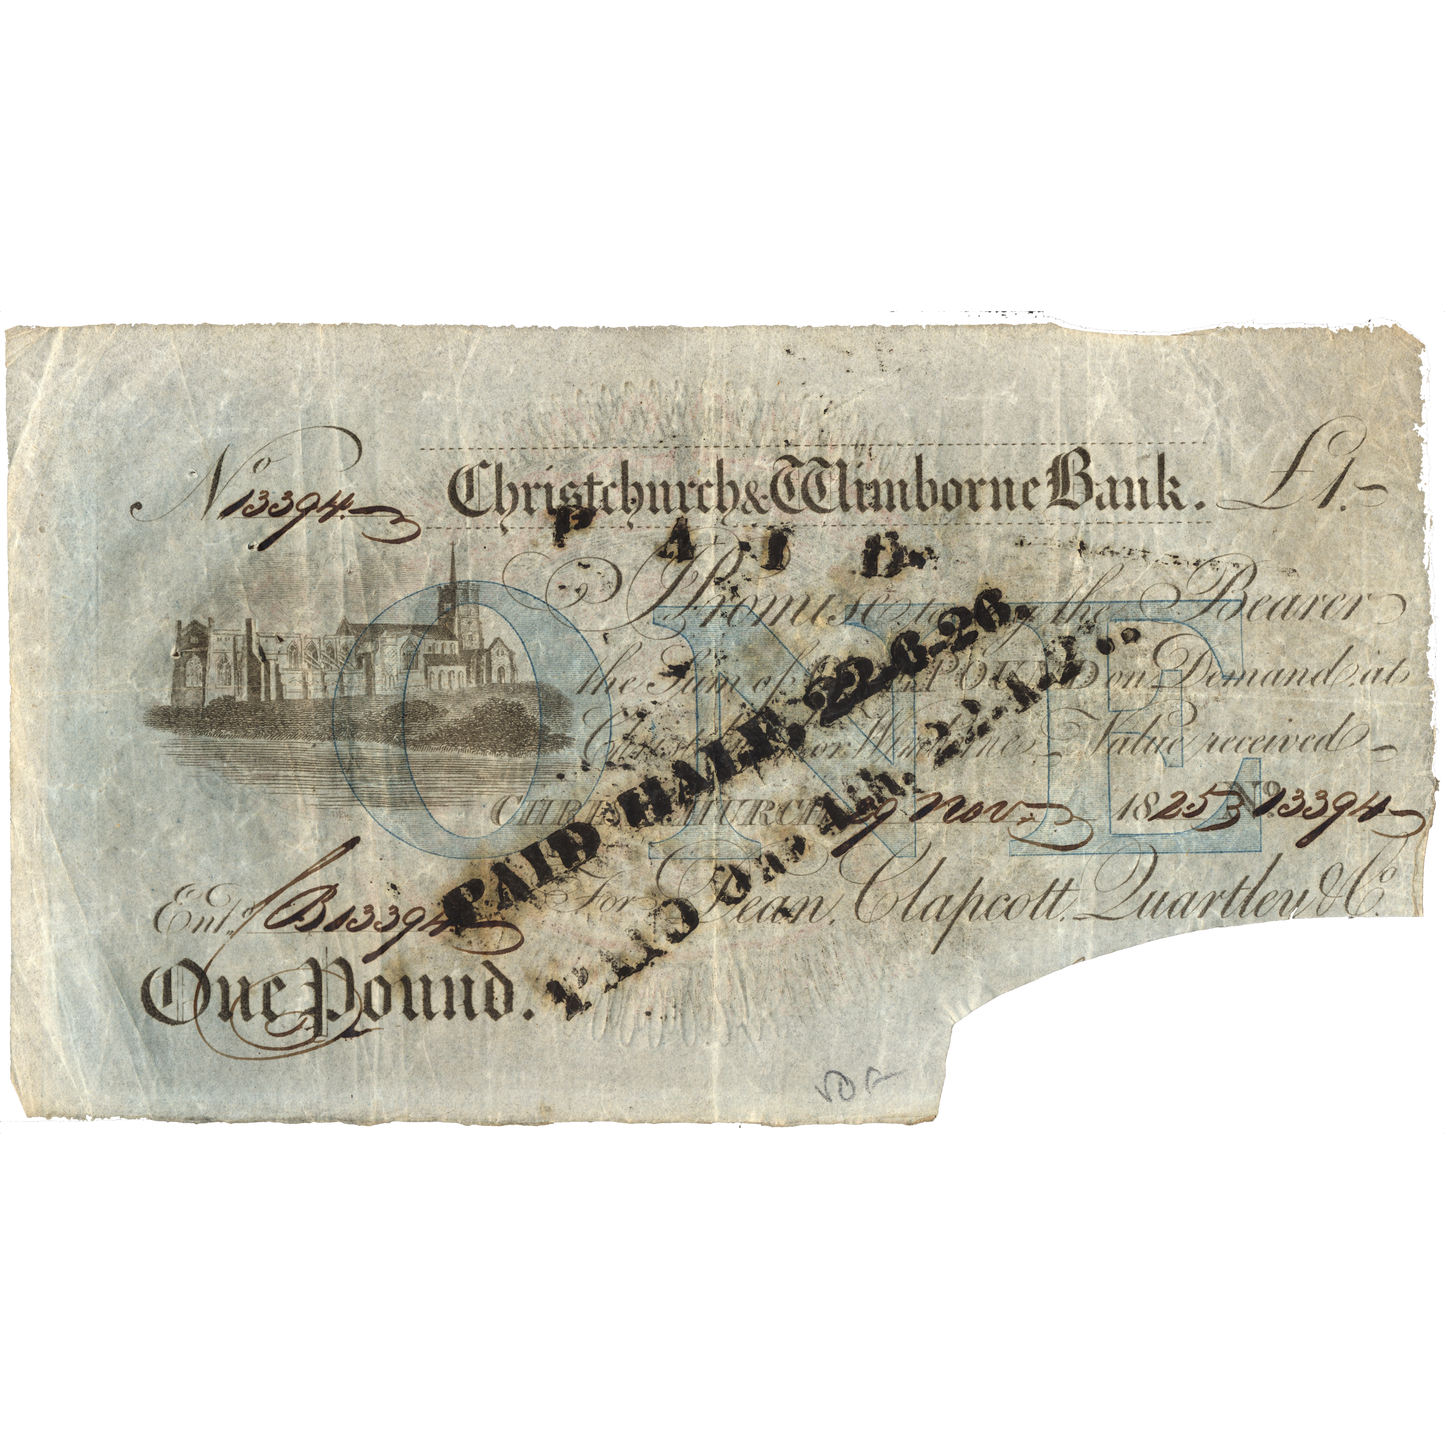 No 13394
Christchurch & Wimborne Bank. £1.-
PAID.
I Promise to pay the Bearer
the Sum of ONE POUND on Demand, at
Christchurch or Wimborne, Value received
CHRISTCHURCH 29 Nov 1825 No 13394
PAID HALF, 22-6-26.
PAID
For Dean, Clapcott, Quartley & Co.
Entd. B 13394
One Pound.
ONE